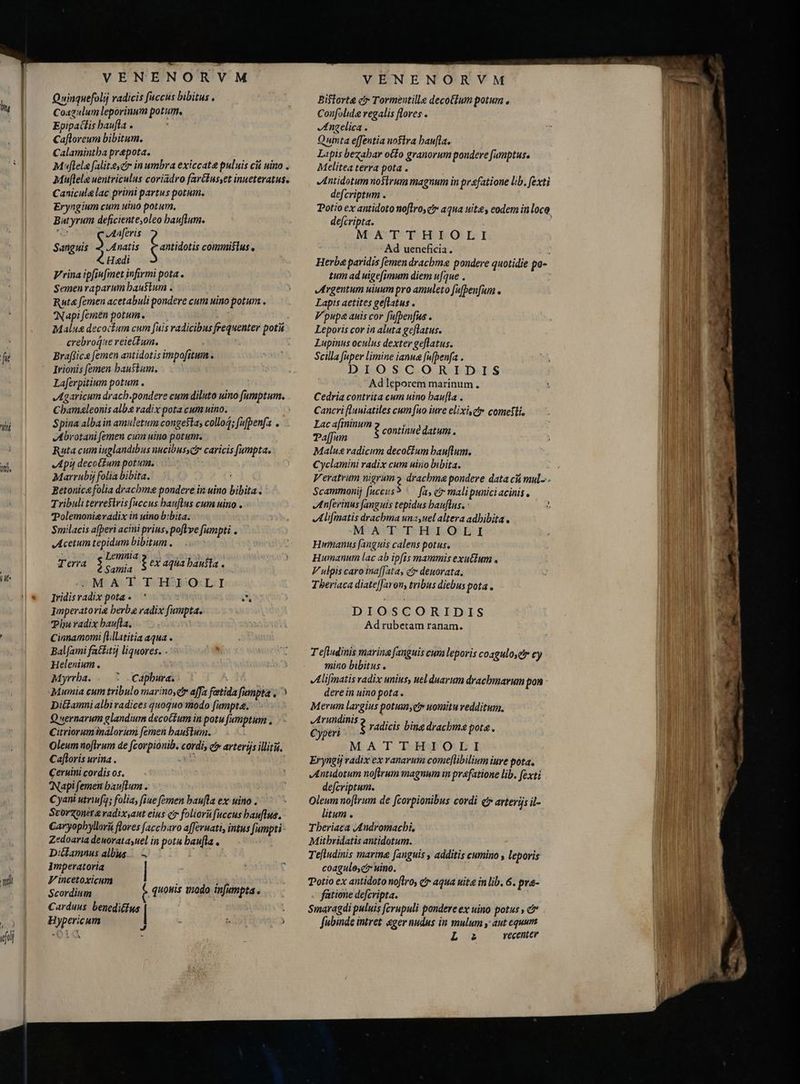 VENENORVM
Quinquefolij radicis ſuccus bibitus .
Coagulum leporinum potum.
Epipactis hauſta .
Caſtoreum bibitum.
Calamintha præpota.
Muſtelæ ſalitæ,&r in umbra exiccatæ puluis cū uino .
Muſtelæ uentriculus coriādro farctus,et inueteratus.
Caniculæ lac primi partus potum.
Eryngium cum uino potum.
Butyrum deficiente,oleo hauſtum.
Anſeris
Sanguis Anatis antidotis commiſtus .
Hædi
Vrina ipſiuſmet infirmi pota .
Semen raparum hauſtum .
Rutæ ſemen acetabuli pondere cum uino potum .
Napi ſemen potum .
Maluæ decoctum cum ſuis radicibus frequenter potū
crebroq́ue reiectum.
Braſſicæ ſemen antidotis impoſitum .
Irionis ſemen hauſtum.
Laſerpitium potum .
Agaricum drach.pondere cum diluto uino ſumptum.
Chamæleonis albæ radix pota cum uino.
Spina alba in amuletum congeſta, colloq́; ſuſpenſa .
Abrotani ſemen cum uino potum.
Ruta cum iuglandibus nucibus,& caricis ſumpta.
Apij decoctum potum.
Marrubij folia bibita.
Betonicæ folia drachmæ pondere in uino bibita .
Tribuli terreſtris ſuccus hauſtus cum uino .
Polemoniæ radix in uino bibita.
Smilacis aſperi acini prius, poſt ve ſumpti .
Acetum tepidum bibitum .
Terra Lemnia
Samia ex aqua hauſta .
MATTHIOLI
Iridis radix pota .
Imperatoriæ herbæ radix ſumpta.
Phu radix hauſta.
Cinnamomi ſtillatitia aqua .
Balſami factitij liquores. .
Helenium .
Myrrha. . Caphura.
Mumia cum tribulo marino,& aſſa fœtida ſumpta .
Dictamni albi radices quoquo modo ſumptæ.
Quernarum glandium decoctum in potu ſumptum .
Citriorum malorum ſemen hauſtum.
Oleum noſtrum de ſcorpionib. cordi, & arterijs illitū.
Caſtoris urina .
Ceruini cordis os.
Napi ſemen hauſtum .
Cyani utriuſq́; folia, ſiue ſemen hauſta ex uino .
Scorzoneræ radix,aut eius & foliorū ſuccus hauſtus.
Caryophyllorū flores ſaccharo aſſeruati, intus ſumpti
Zedoaria deuorata,uel in potu hauſta .
Dictamnus albus.
Imperatoria
Vincetoxicum
Scordium quouis modo inſumpta.
Carduus benedictus
Hypericum
VENENORVM
Biſtortæ & Tormentillæ decoctum potum .
Conſolidæ regalis flores .
Angelica .
Quinta eſſentia noſtra hauſta.
Lapis bezahar octo granorum pondere ſumptus.
Melitea terra pota .
Antidotum noſtrum magnum in præfatione lib. ſexti
deſcriptum .
Potio ex antidoto noſtro, & aqua uitæ, eodem in loco
deſcripta.
MATTHIOLI
Ad ueneficia.
Herbæ paridis ſemen drachmæ pondere quotidie po-
tum ad uigeſimum diem uſque .
Argentum uiuum pro amuleto ſuſpenſum .
Lapis aetites geſtatus .
Vpupæ auis cor ſuſpenſus .
Leporis cor in aluta geſtatus.
Lupinus oculus dexter geſtatus.
Scilla ſuper limine ianuæ ſuſpenſa .
DIOSCORIDIS
Ad leporem marinum .
Cedria contrita cum uino hauſta .
Cancri fluuiatiles cum ſuo iure elixi,& comeſti.
Lac aſininum
Paſſum continuè datum .
Maluæ radicum decoctum hauſtum.
Cyclamini radix cum uino bibita.
Veratrum nigrum drachmæ pondere data cū mul-
Scammonij ſuccus ſa, & mali punici acinis .
Anſerinus ſanguis tepidus hauſtus.
Aliſmatis drachma una,uel altera adhibita .
MATTHIOLI
Humanus ſanguis calens potus.
Humanum lac ab ipſis mammis exuctum .
Vulpis caro inaſſata, & deuorata.
Theriaca diateſſaron, tribus diebus pota .
DIOSCORIDIS
Ad rubetam ranam.
Teſtudinis marinæ ſanguis cum leporis coagulo,& cy
mino bibitus .
Aliſmatis radix unius, uel duarum drachmarum pon
dere in uino pota .
Merum largius potum,& uomitu redditum.
Arundinis
Cyperi radicis binæ drachmæ potæ .
MATTHIOLI
Eryngij radix ex ranarum comeſtibilium iure pota.
Antidotum noſtrum magnum in præfatione lib. ſexti
deſcriptum.
Oleum noſtrum de ſcorpionibus cordi & arterijs il-
litum .
Theriaca Andromachi,
Mithridatis antidotum.
Teſtudinis marinæ ſanguis , additis cumino , leporis
coagulo,& uino.
Potio ex antidoto noſtro, & aqua uitæ in lib. 6. præ-
fatione deſcripta.
Smaragdi puluis ſcrupuli pondere ex uino potus , &
ſubinde intret æger nudus in mulum , aut equum
L 2 recenter